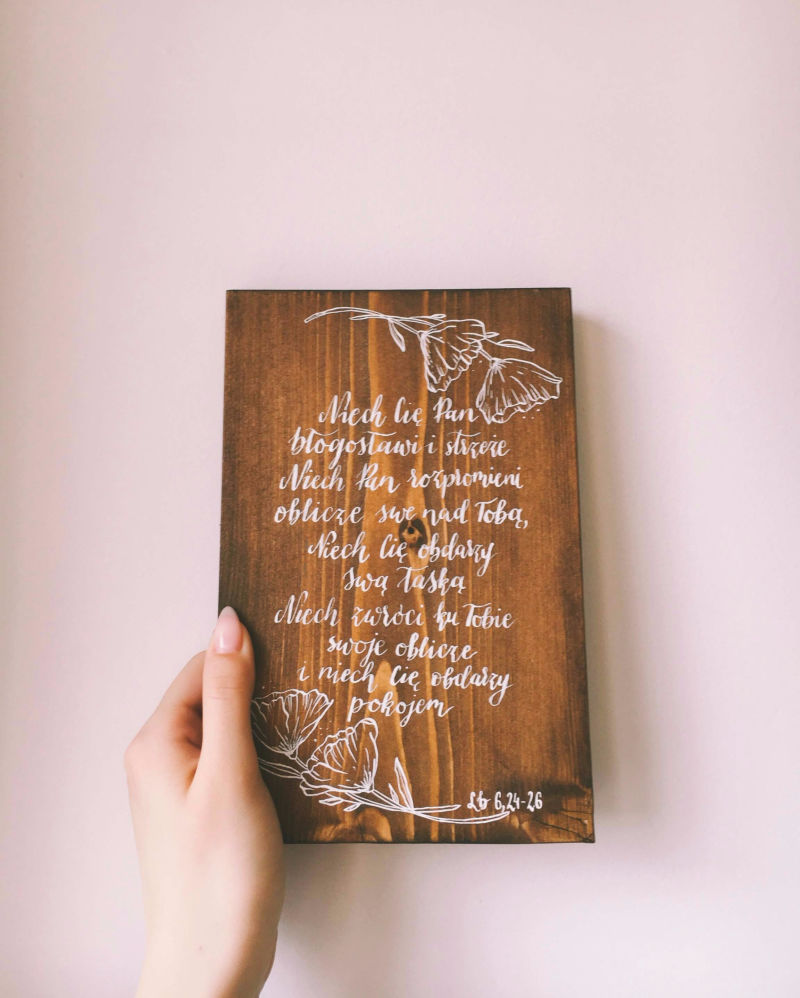 Niech Cię Pan
błogosławi i strzeże
Niech Pan rozpromieni
oblicze swe nad Tobą,
Niech Cię obdarzy
swą łaską
Niech zwróci ku Tobie
swoje oblicze
i niech Cię obdarzy
pokojem
Lb 6,24-26